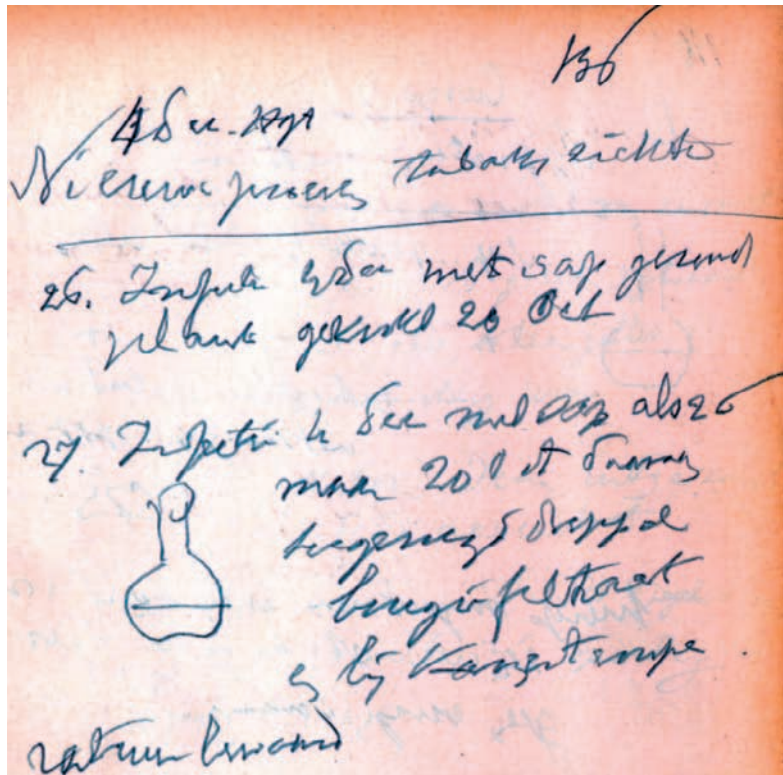 136
4 Dec. 1897
Nieuwe proeven tabaksziekte
26. Infectie 4 Dec met sap gezond
plant gekookt 20 Oct
27. Infectie 4 Dec met sap als 26
maar 20 Oct daarna
toegevoegd druppel
bougiefiltraat
en bij kamertempe
ratuur bewaard